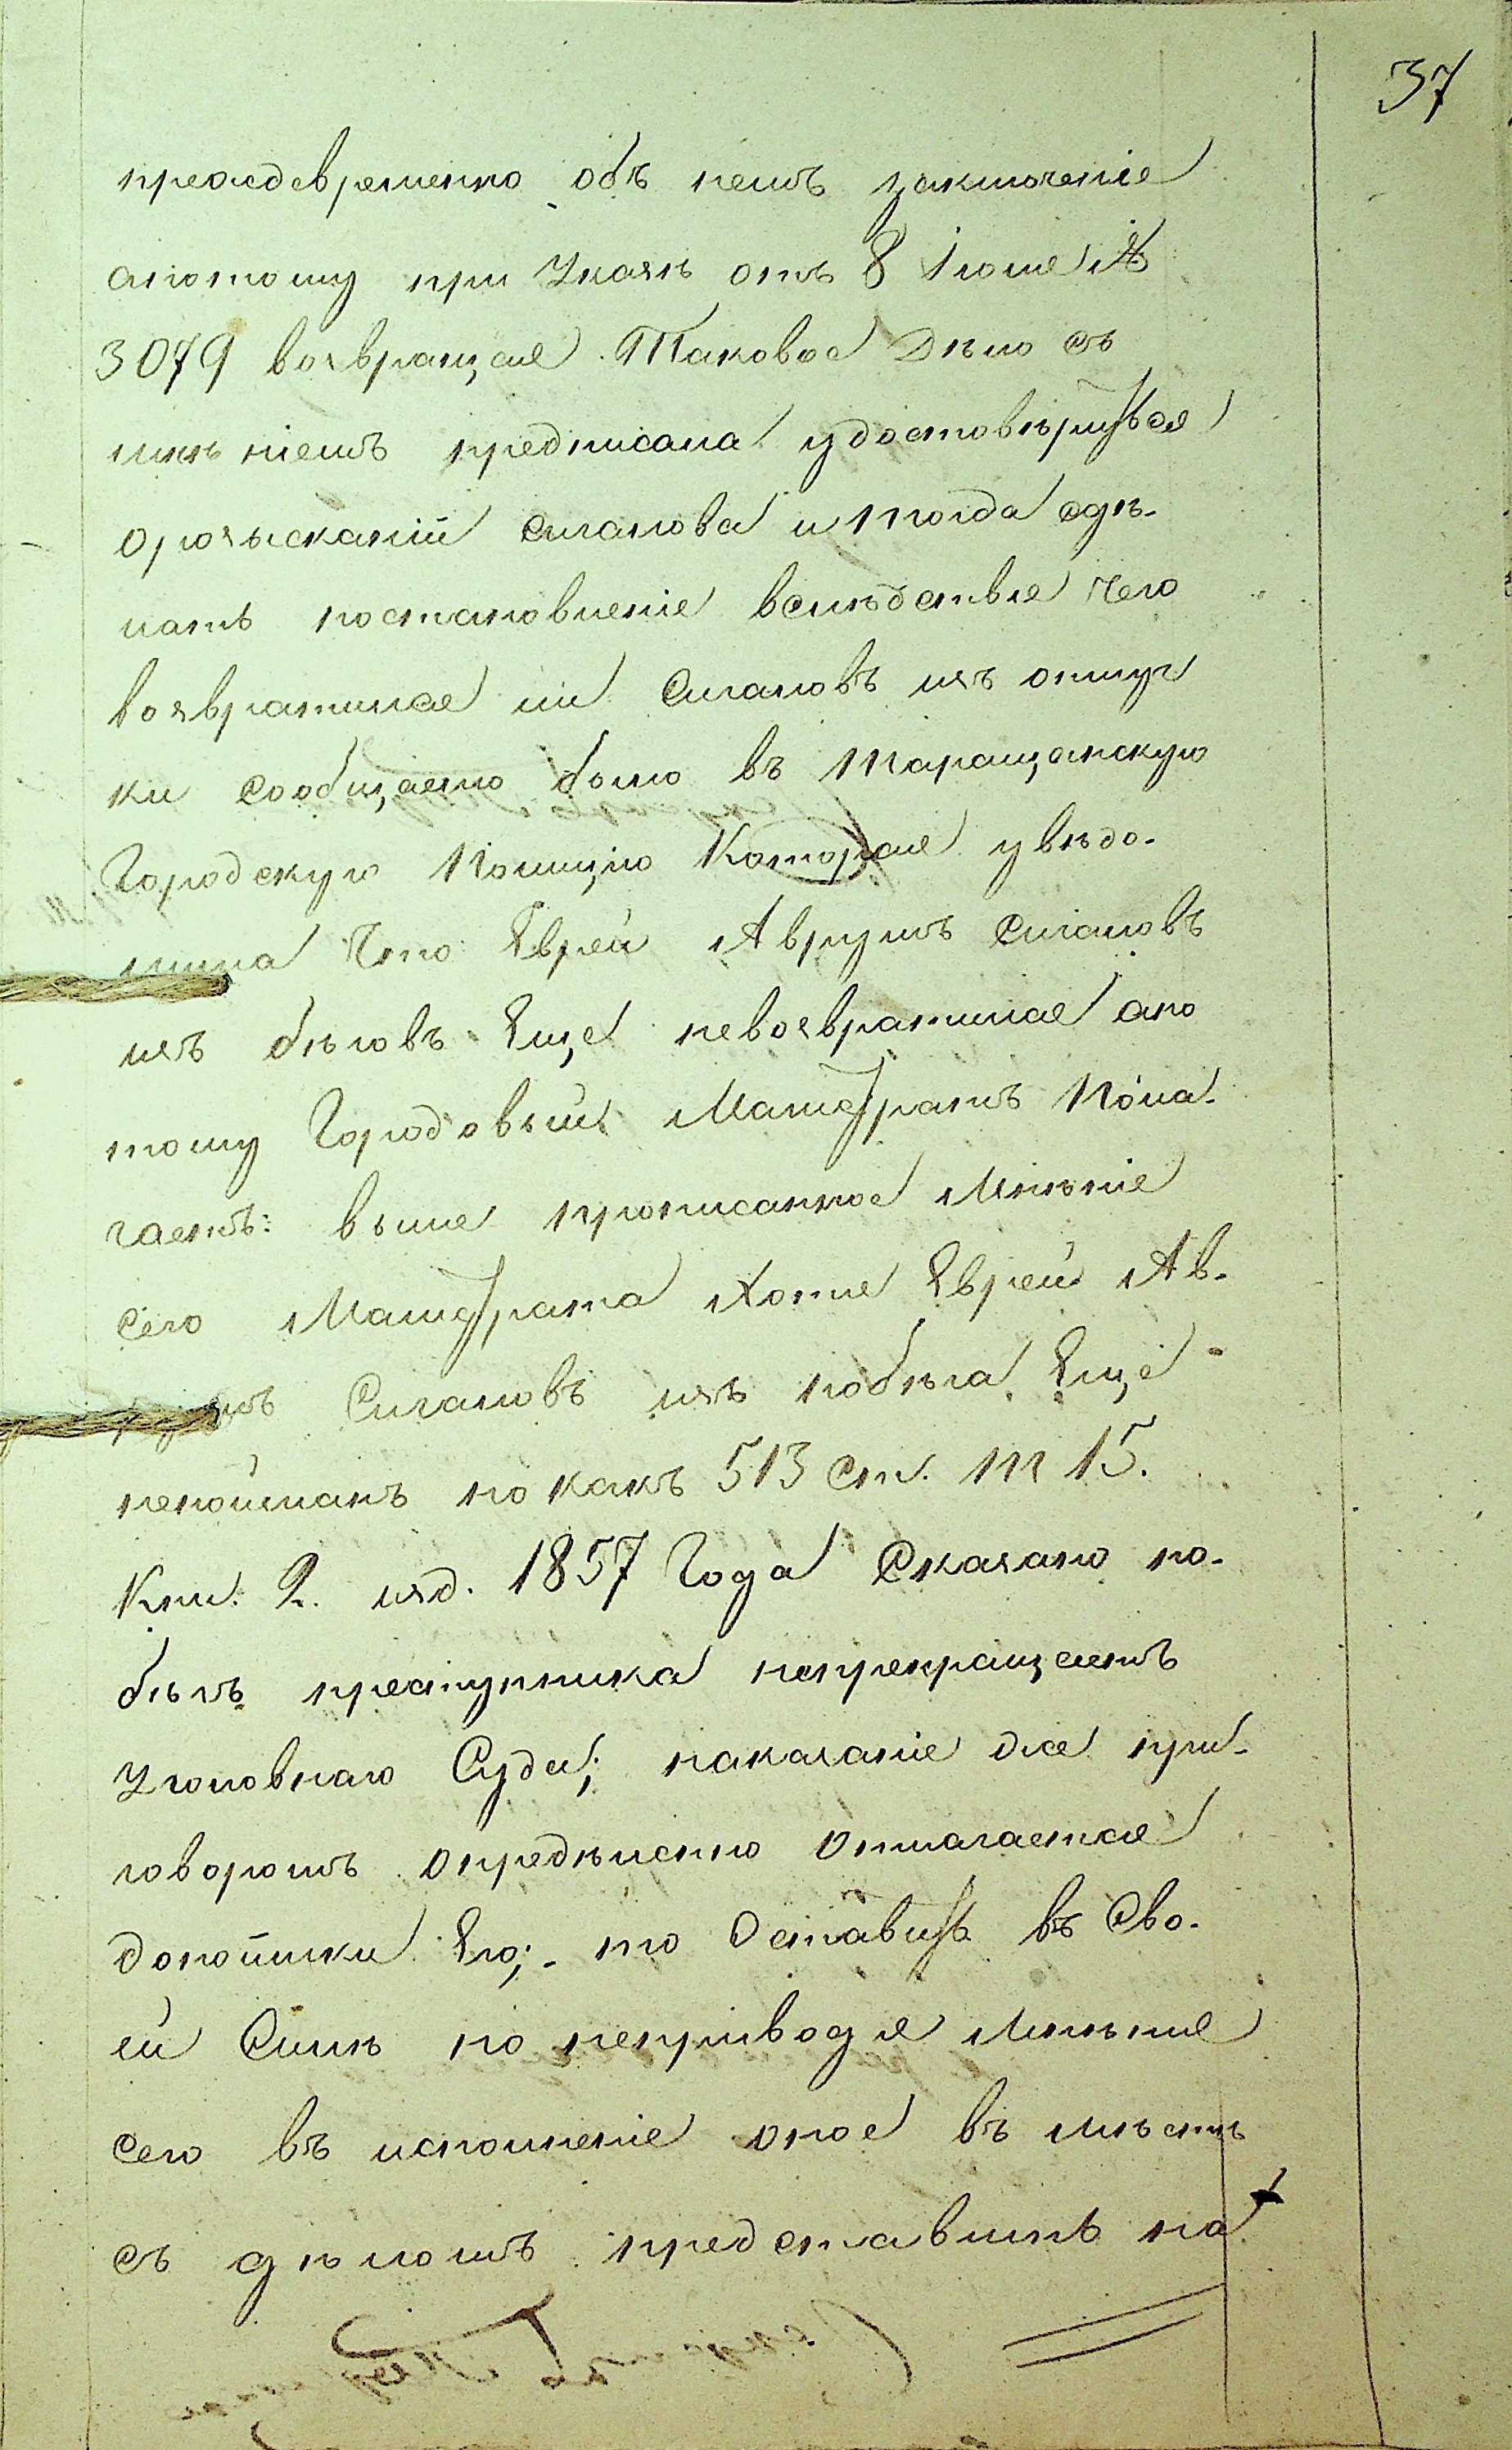 37
преждевременно объ немъ заключеніе
апотому при Указѣ отъ 8 Іюня №
3079 возвращая Таковое Дѣло съ
мнѣніемъ предписала удостовѣриться
орозысканіи Сиганова и тогда сдѣ-
лать постановленіе вслѣдствіе чего
возвратился ли Сигановъ изъ отлуч
ки сообщаемо было въ Таращанскую
Городскую Полицію Которая увѣдо-
мила Что Еврей Аврумъ Сигановъ
изъ бѣговъ Еще невозвратился апо
тому Городовый Магистратъ Пола-
гаетъ: выше прописанное Мнѣніе
сего Магистрата Хотя Еврей Ав-
румъ Сигановъ изъ побѣга Еще
непойманъ но какъ 513 ст. Т 15.
Кни. 2. изд. 1857 Года Сказано по-
бѣгъ преступника непрекращаетъ
Уголовнаго Суда; наказаніе же при-
говоромъ опредѣленно отлагается
допоимки Его; - то Оставить въ Сво-
ей Силѣ но неприводя Мнѣнія
сего въ исполненіе оное въ мѣстѣ
съ дѣломъ представить на